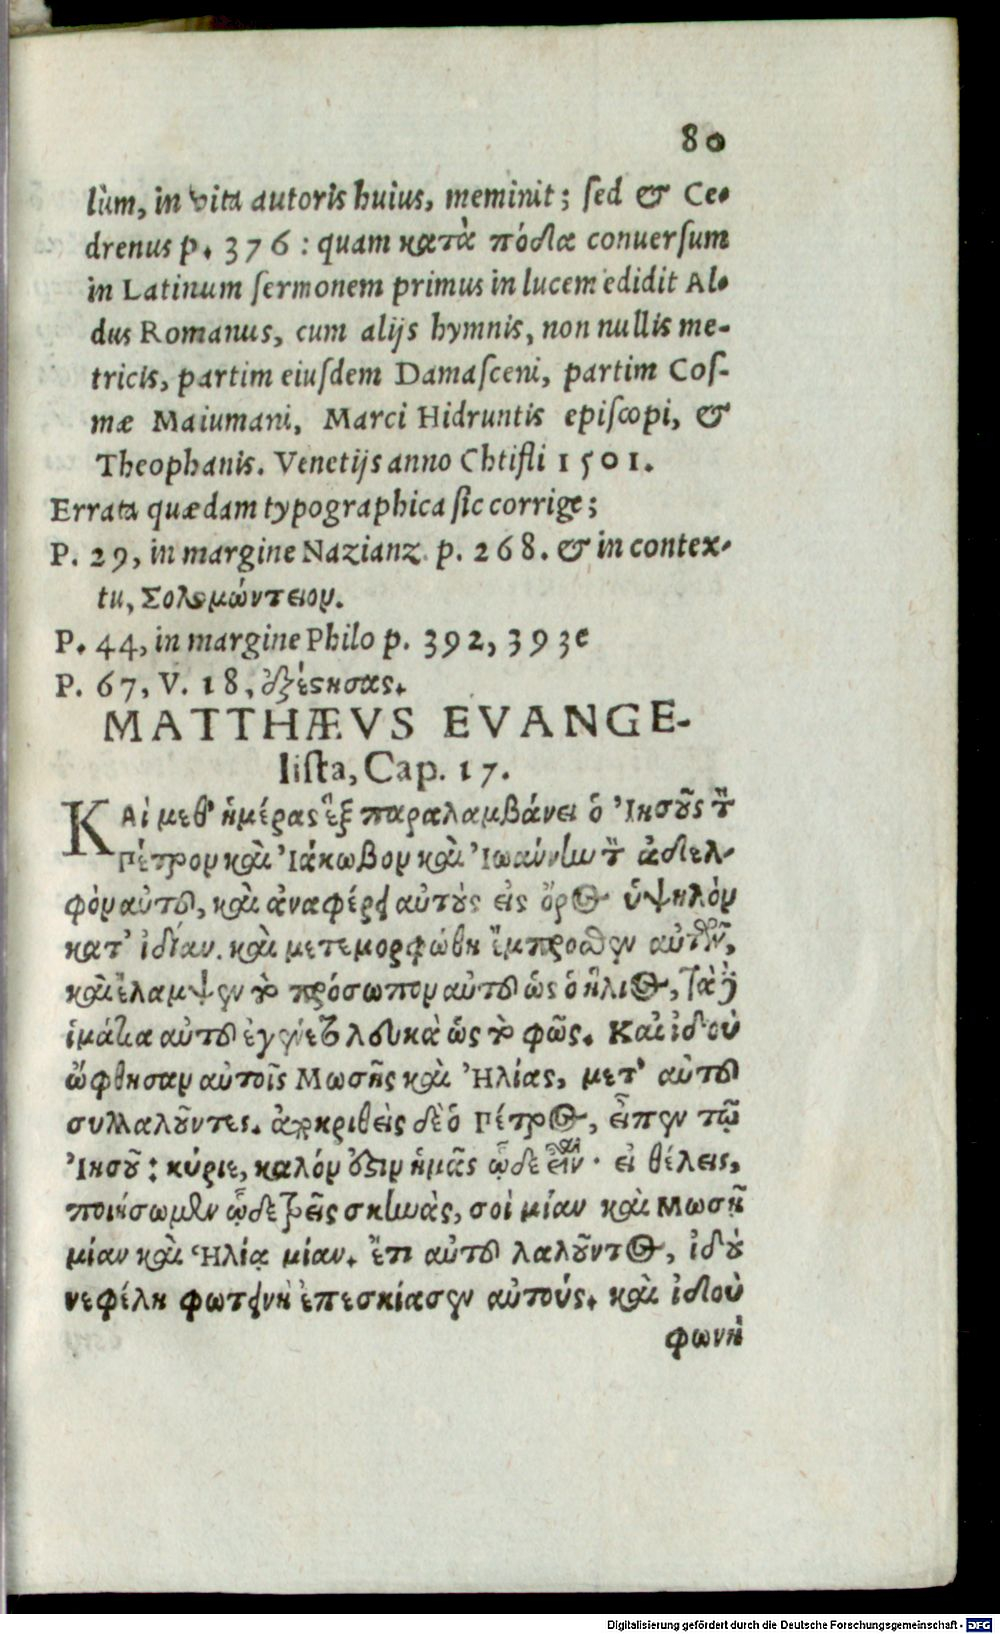 80
lùm, in vita autoris huius, meminit; sed & Ce-
drenus p. 376: quam κατὰ πόδα conuersum
in Latinum sermonem primus in lucem edidit Al-
dus Romanus, cum alijs hymnis, non nullis me-
tricis, partim eiusdem Damasceni, partim Cos-
mæ Maiumani, Marci Hidruntis episcopi, &
Theophanis. Venetijs anno Chtisti 1501.
Errata quædam typographica sic corrige;
P. 29, in margine Nazianz. p. 268. & in contex-
tu, Σολομώντειον.
P. 44, in margine Philo p. 392, 393e
P. 67, V. 18, ἐξέστησας.
MATTHÆVS EVANGE-
lista, Cap. 17.
ΚΑὶ μεθ' ἡμέρας ἓξ παραλαμβάνει ὁ Ἰησοῦς τὸν
Πέτρον καὶ Ἰάκωβον καὶ Ἰωάννην τὸν ἀδελ-
φὸν αὐτοῦ, καὶ ἀναφέρει αὐτοὺς εἰς ὄρος ὑψηλὸν
κατ' ἰδίαν. καὶ μετεμορφώθη ἔμπροσθεν αὐτῶν,
καὶ ἔλαμψεν τὸ πρόσωπον αὐτοῦ ὡς ὁ ἥλιος, τὰ δὲ
ἱμάτια αὐτοῦ ἐγένετο λευκὰ ὡς τὸ φῶς. Καὶ ἰδοὺ
ὤφθησαν αὐτοῖς Μωσῆς καὶ Ἠλίας, μετ' αὐτοῦ
συλλαλοῦντες. ἀποκριθεὶς δὲ ὁ Πέτρος, εἶπεν τῷ
Ἰησοῦ: κύριε, καλόν ἐστιν ἡμᾶς ὧδε εἶναι· εἰ θέλεις,
ποιήσωμεν ὧδε τρεῖς σκηνὰς, σοὶ μίαν καὶ Μωσῇ
μίαν καὶ Ἡλίᾳ μίαν. ἔτι αὐτοῦ λαλοῦντος, ἰδοὺ
νεφέλη φωτεινὴ ἐπεσκίασεν αὐτούς. καὶ ἰδοὺ
φωνὴ
Digitalisierung gefördert durch die Deutsche Forschungsgemeinschaft - DFG